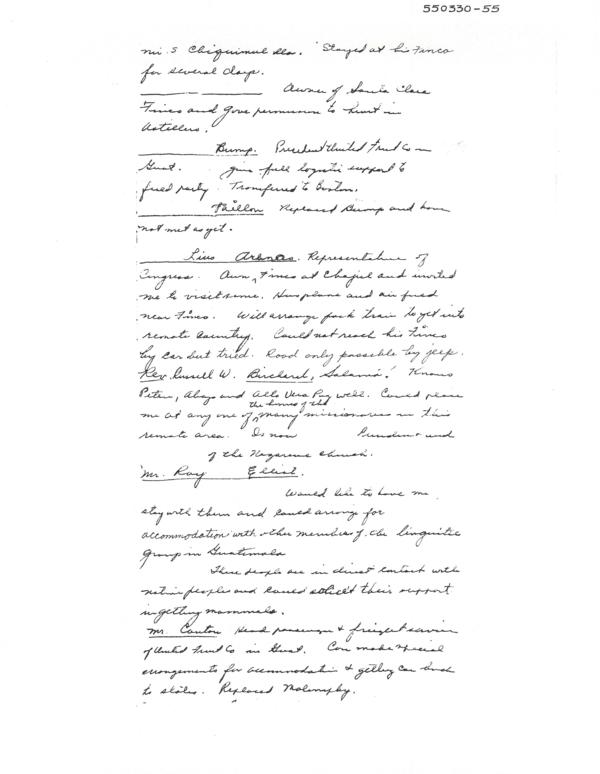 550330-55
mi. S Chiquimulilla. Stayed at his Finca
for several days.
Owner of Santa Clara
Finca and gave permission to hunt in
Astillero.
Bump. President United Fruit Co in
Guat. give full logistic support to
field party. Transferred to Boston.
Taillon Replaced Bump and have
not met as yet.
Luis Arenas. Representative of
Congress. Own, Finca at Chajul and invited
me to visit same. Has plane and air field
near Finca. Will arrange pack train to get into
remote country. Could not reach his Finca
by car but tried. Road only passable by jeep.
Rev. Russell W. Birchard, Salamá. Knows
Peten, Alay and Alta Vera Paz well. Could place
me at any one of the homes of the many missionaries in this
remote area. Is now President and
of the Nazarene Church.
Mr. Ray Elliot.
Would like to have me
stay with them and could arrange for
accommodation with other members of the linguistic
group in Guatemala
These people are in direct contact with
native people and could solicit their support
in getting mammals.
Mr. Couton Head passenger & freight service
of United Fruit Co in Guat. Can make special
arrangements for accommodation & getting car back
to states. Replaced Molumphy.